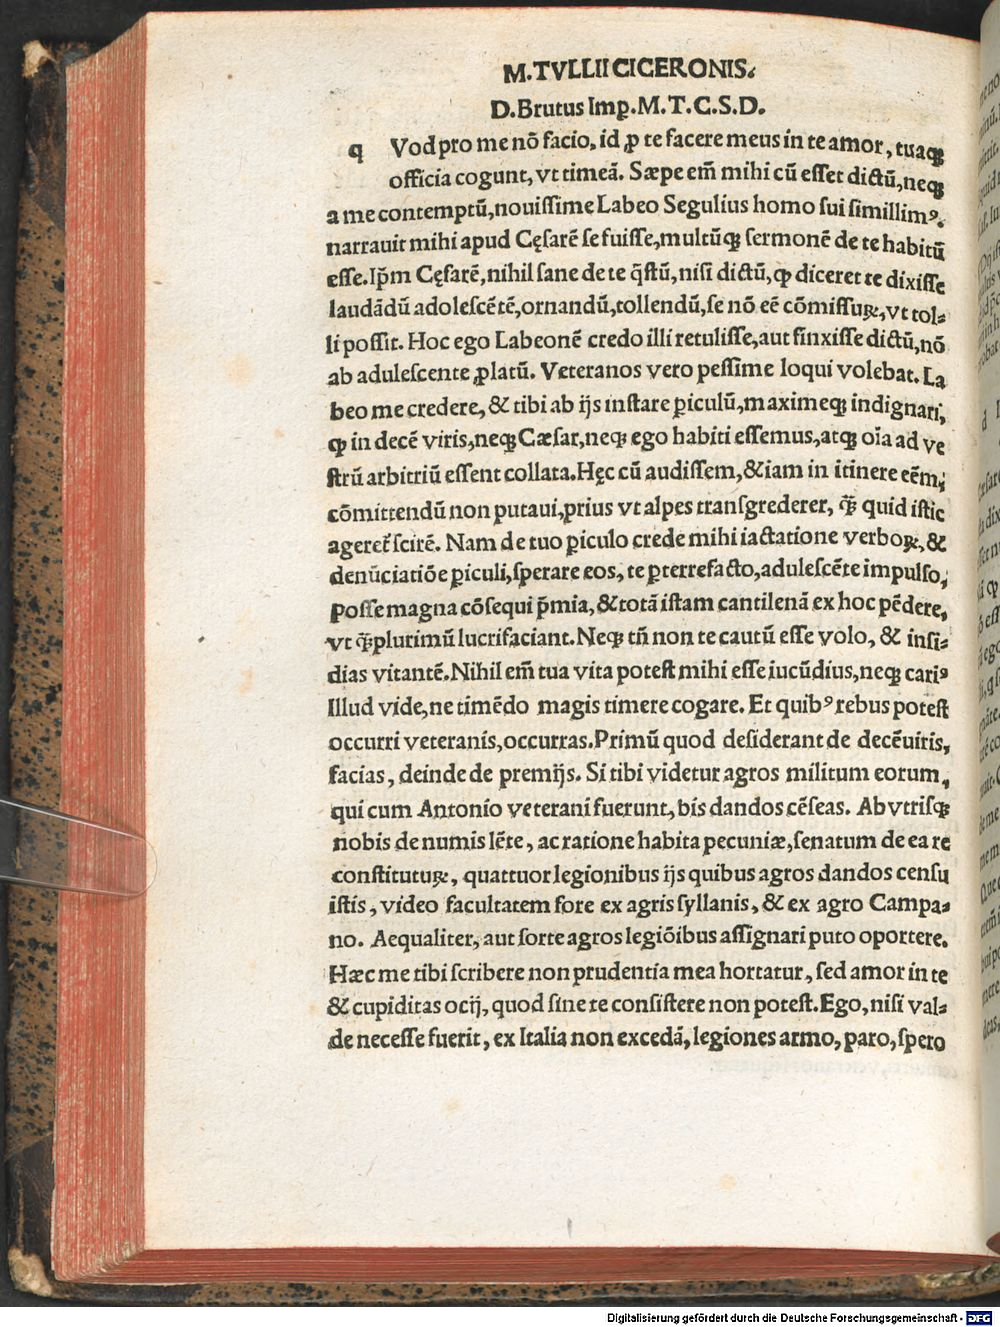 M.TVLLII CICERONIS.
D.Brutus Imp̲.M.T.C.S.D.
q Vod pro me nõ facio, id ꝓ te facere meus in te amor, tuaqꝫ
officia cogunt, vt timeã. Sæpe em̃ mihi cũ esset dictũ, neqꝫ
a me contemptũ, nouissime Labeo Segulius homo sui simillimꝰ.
narrauit mihi apud Cęsarẽ se fuisse, multũqꝫ sermonẽ de te habitũ
esse. Ip̃m Cęsarẽ, nihil sane de te q̃stũ, nisi dictũ, ꝙ diceret te dixisse
laudãdũ adolescẽtẽ, ornandũ, tollendũ, se nõ eẽ cõmissuꝝ, vt tol-
li possit. Hoc ego Labeonẽ credo illi retulisse, aut finxisse dictũ, nõ
ab adulescente ꝓlatũ. Veteranos vero pessime loqui volebat. La
beo me credere, & tibi ab ijs instare ꝑiculũ, maximeqꝫ indignari,
ꝙ in decẽ viris, neqꝫ Cæsar, neqꝫ ego habiti essemus, atqꝫ oĩa ad ve
strũ arbitriũ essent collata. Hęc cũ audissem, & iam in itinere eẽm,
cõmittendũ non putaui, prius vt alpes transgrederer, q̃ꝫ quid istic
ageret̃ scirẽ. Nam de tuo ꝑiculo crede mihi iactatione verboꝝ, &
denũciatiõe ꝑiculi, sperare eos, te ꝑterrefacto, adulescẽte impulso,
posse magna cõsequi p̃mia, & totã istam cantilenã ex hoc pẽdere,
vt q̃ꝫplurimũ lucrifaciant. Neqꝫ tñ non te cautũ esse volo, & insi-
dias vitantẽ. Nihil em̃ tua vita potest mihi esse iucũdius, neqꝫ cariꝰ
Illud vide, ne timẽdo magis timere cogare. Et quibꝰ rebus potest
occurri veteranis, occurras. Primũ quod desiderant de decẽuiris,
facias, deinde de premijs. Si tibi videtur agros militum eorum,
qui cum Antonio veterani fuerunt, bis dandos cẽseas. Ab vtrisqꝫ
nobis de numis lẽte, ac ratione habita pecuniæ, senatum de ea re
constitutuꝝ, quattuor legionibus ijs quibus agros dandos censu
istis, video facultatem fore ex agris syllanis, & ex agro Campa-
no. Aequaliter, aut sorte agros legiõibus assignari puto oportere.
Hæc me tibi scribere non prudentia mea hortatur, sed amor in te
& cupiditas ocij, quod sine te consistere non potest. Ego, nisi val-
de necesse fuerit, ex Italia non excedã, legiones armo, paro, spero
Digitalisierung gefördert durch die Deutsche Forschungsgemeinschaft - DFG